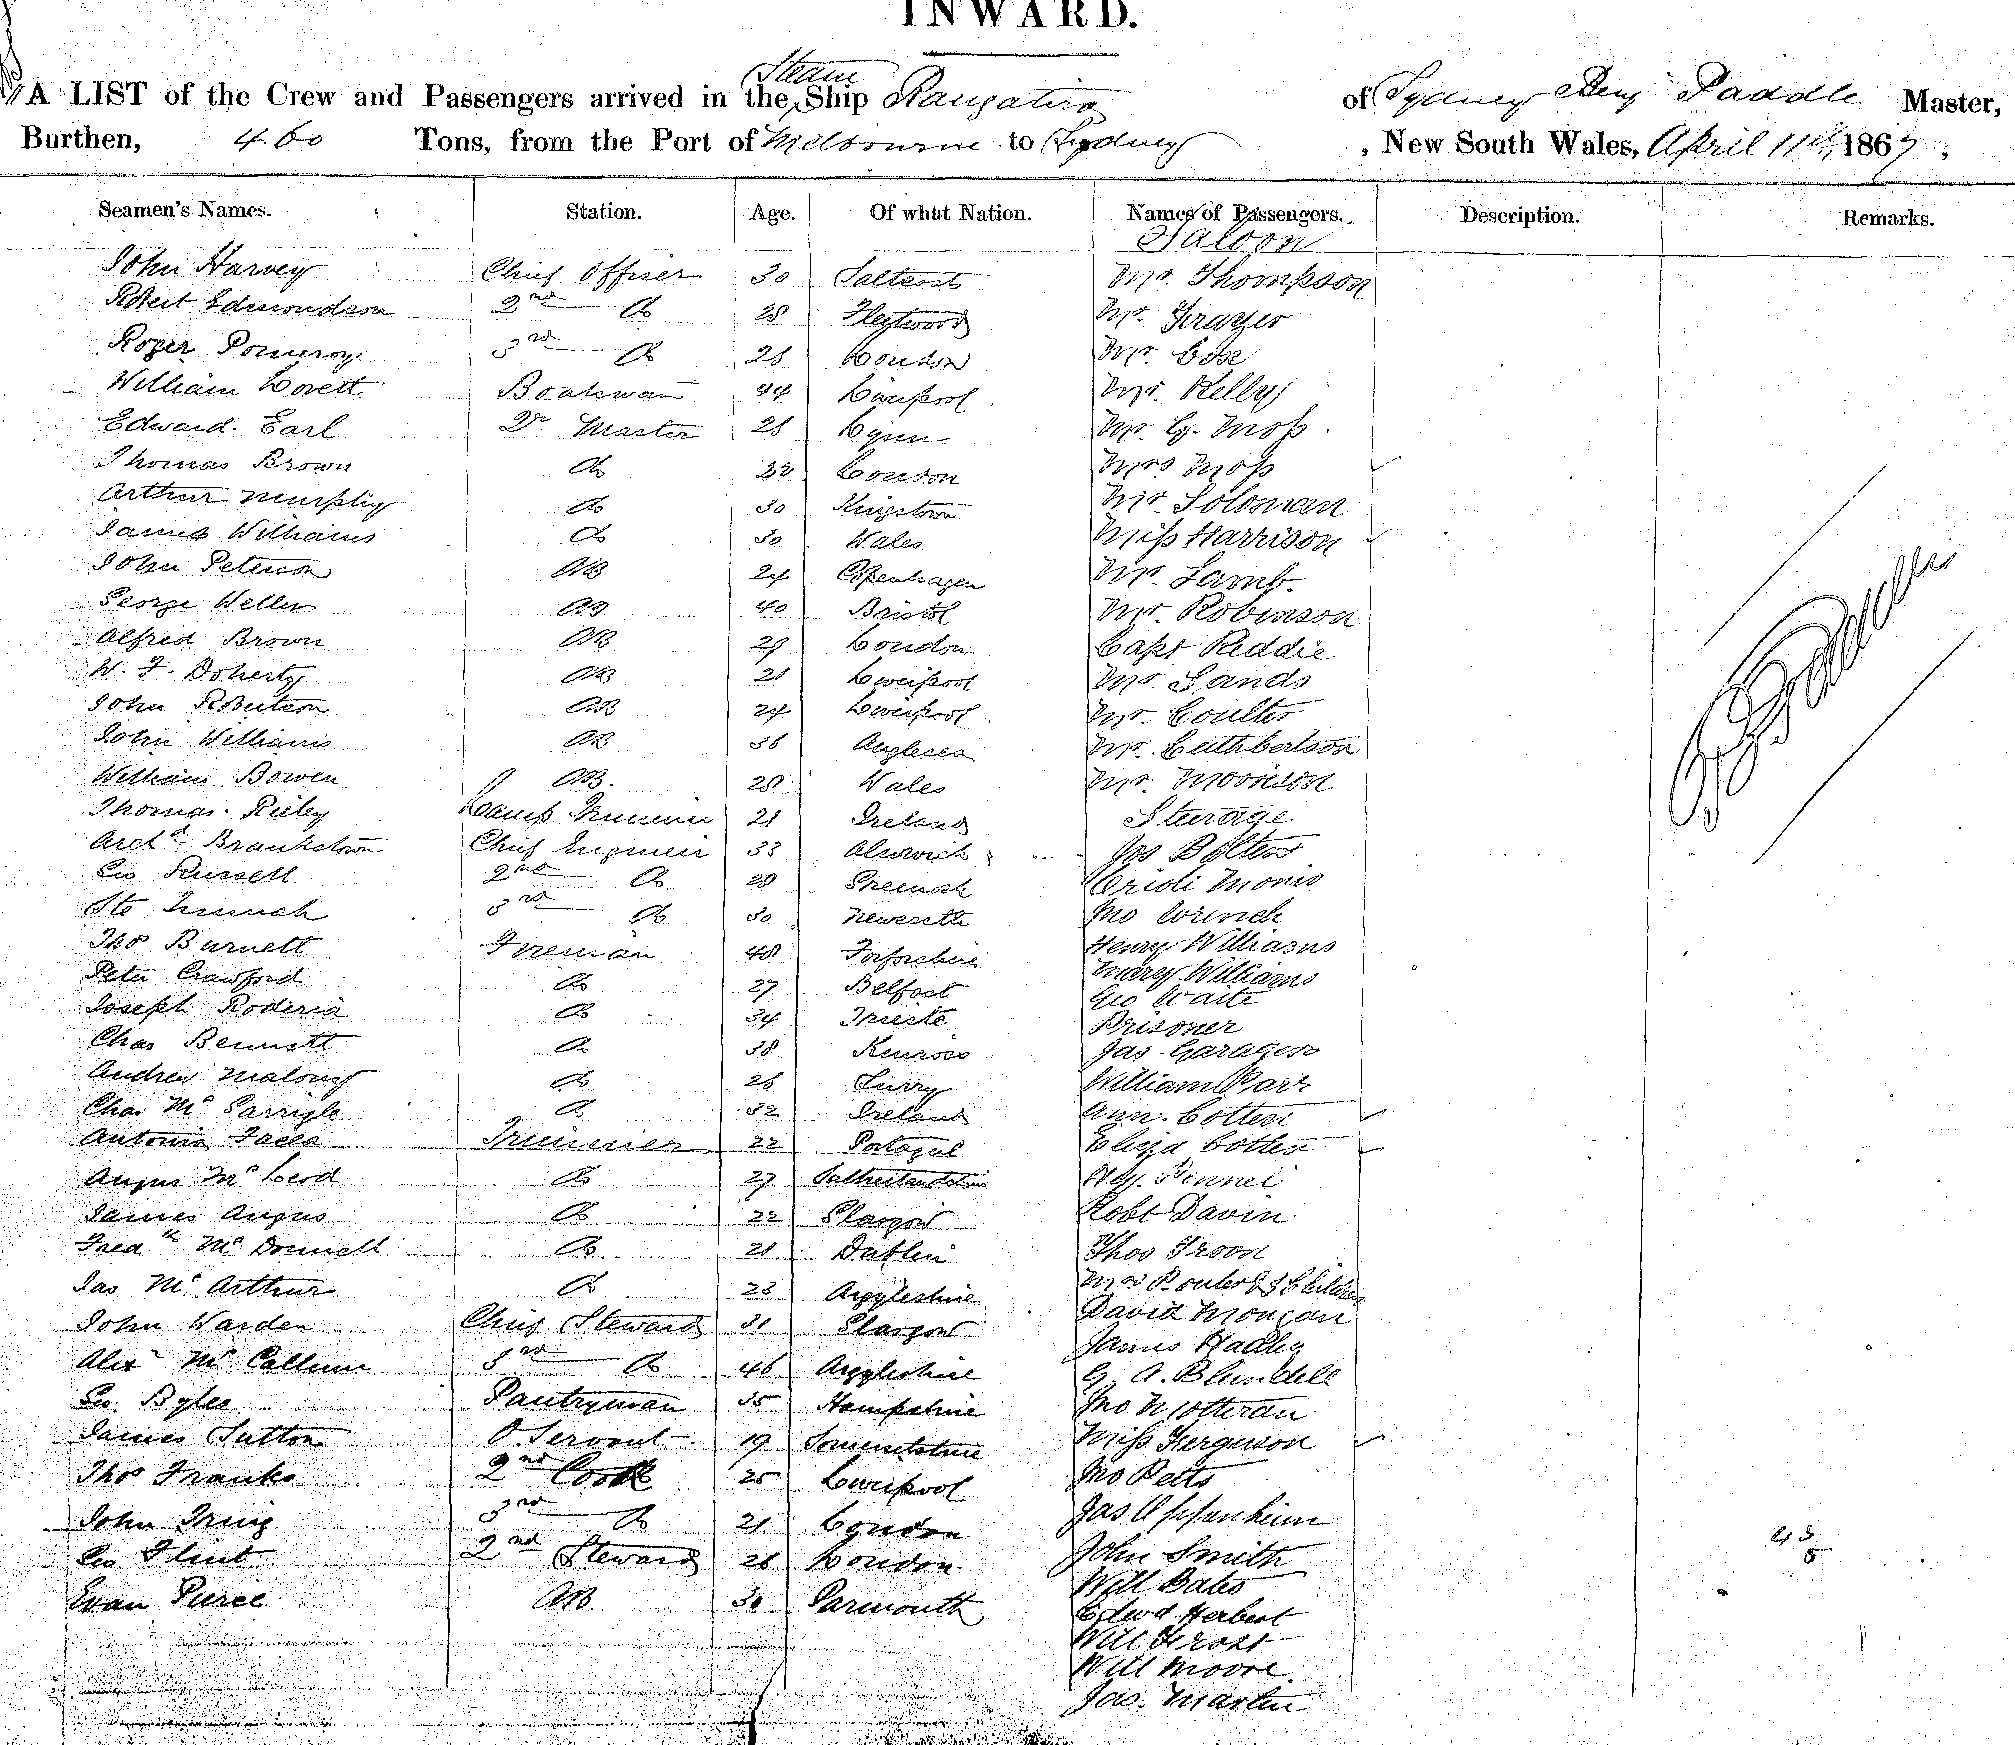 INWARD.
A LIST of the Crew and Passengers arrived in the Steam Ship Rangatira of Sydney Benj Paddle Master,
Burthen, 460 Tons, from the Port of Melbourne to Sydney, New South Wales, April 11th, 1867,
Seamen's Names. Station. Age. Of what Nation. Names of Passengers. Description. Remarks.
Saloon
John Harvey Chief Officer 30 Mr. Thompson
Robert Edmondson 2nd Do 28 Fleetwood Mr. Frazer
Roger Pomeroy 3rd Do 28 London Mr. Cox
William Lovett Boatswain 44 Liverpool Mr. Kelly
Edward Earl Qr Master 28 Lynn Mr. G. Moss
Thomas Brown Do 22 London Mrs Moss
Arthur Murphy Do 30 Kingstown Mr. Soloman
James Williams Do 30 Wales Miss Harrison
John Peterson AB 24 Copenhagen Mr. Lamb
George Weller AB 40 Bristol Mr. Robinson
Alfred Brown AB 29 London Capt Reddie
W. F. Doherty AB 21 Liverpool Mr. Sands
John Robertson AB 24 Liverpool Mr. Coulter
John Williams AB 36 Anglesea Mr. Cuthbertson
William Bowen AB. 28 Wales Mr. Morrison
Thomas Rieley Lamp Trimmer 21 Ireland Steerage
Archd Brankstown Chief Engineer 33 Jas Bolton
Geo Russell 2nd Do 28 Greenock Morris
3rd Do 30 Jno Wrench
Thos Burnett Fireman 48 Forfarshire Henry Williams
Peter Crawford Do 27 Belfast Mary Williams
Geo Waite
Joseph Do 34 Trieste Prisoner
Chas Bennett Do 38 Kinross Jas
Andrew Malony Do 26 Surry William Parr
Chas Mc Garrigle Do 32 Ireland Ann Cotter
Antonio Trimmer 22 Portugal Eliza Cotter
Angus Mc Leod Do 27 Sutherlandshire Hy.
James Angus Do 22 Glasgow Robt Davin
Fredk Mc Donnell Do 21 Dublin Thos Troon
Jas Mc Arthur Do 23 Argyleshire Mrs & 3 Children
John Warden Chief Steward 31 Glasgow David Mongan
James Hadley
Alexr Mc Callum 3rd Do 46 Argyleshire G. A. Blundell
Geo. Byles Pantryman 35 Hampshire Jno
James Sutton O. Servant 19 Somersetshire Miss Ferguson
Thos Franks 2nd Cook 25 Liverpool Jno Petts
John Irving 3rd Do 21 London Jas Oppenheim
Geo Flint 2nd Steward 26 London John Smith
Evan Pierce AB 30 Yarmouth Will
Edwd Herbert
Will Frost
Will Moore
Jas. Martin